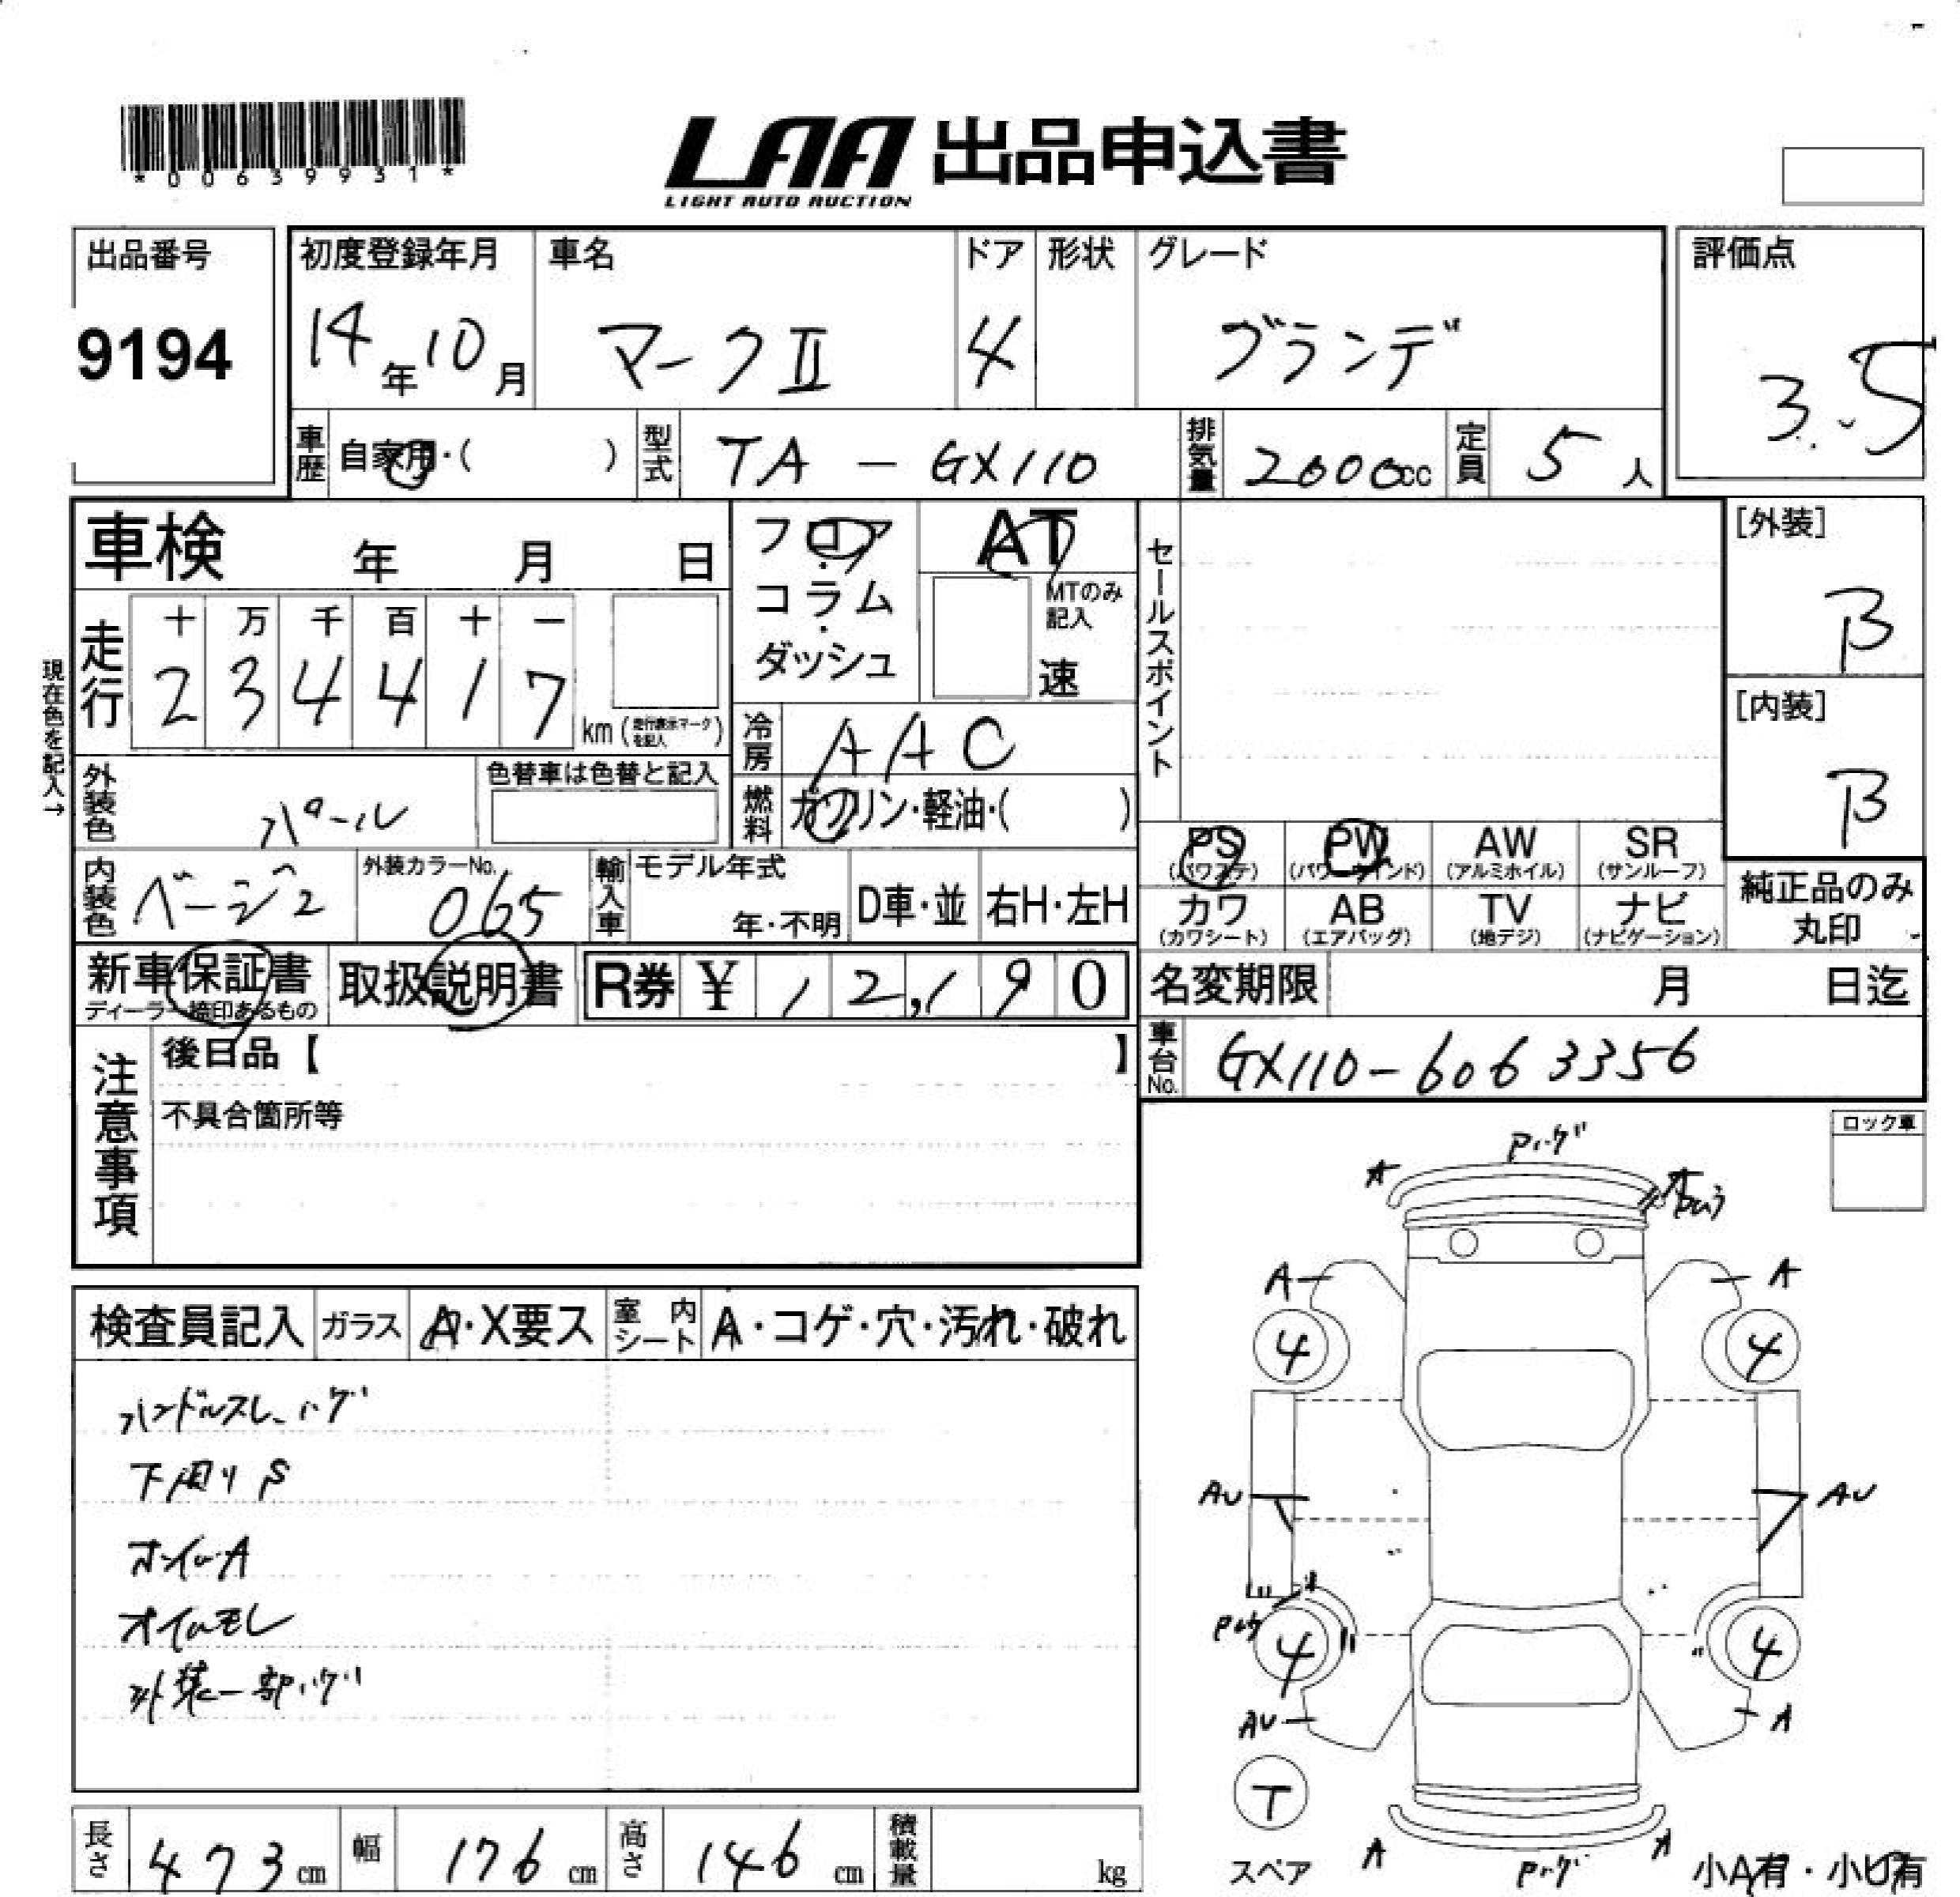 *00639931*
LAA 出品申込書
LIGHT AUTO AUCTION
出品番号
9194
初度登録年月
14年10月
車名
マークⅡ
ドア
4
形状
グレード
グランデ
評価点
3.5
車歴
自家用・( )
型式
TA-GX110
排気量
2000cc
定員
5人
車検 年 月 日
フロア・コラム・ダッシュ
AT
MTのみ記入
速
セールスポイント
[外装]
B
[内装]
B
現在色を記入→
走行
十 万 千 百 十 一
2 3 4 4 1 7
km(走行表示マークを記入)
冷房
AAC
外装色
パール
色替車は色替と記入
燃料
ガソリン・軽油・( )
内装色
ベージュ
外装カラーNo.
065
輸入車
モデル年式
年・不明
D車・並
右H・左H
PS
(パワステ)
PW
(パワーウインド)
AW
(アルミホイル)
SR
(サンルーフ)
カワ
(カワシート)
AB
(エアバッグ)
TV
(地デジ)
ナビ
(ナビゲーション)
純正品のみ丸印
新車保証書
ディーラー捺印あるもの
取扱説明書
R券 ¥12,190
名変期限 月 日迄
車台No.
GX110-6063356
注意事項
後日品【 】
不具合箇所等
ロック車
検査員記入
ガラス
A・X要ス
室内シート
A・コゲ・穴・汚れ・破れ
ハンドルスレ・ハゲ
下周りS
ホイルA
オイルモレ
外装一部ハゲ
Pハゲ
A
A
A
A
4
4
AU
AU
4
4
AU
A
T
スペア
A
Pハゲ
A
小A有・小U有
長さ
473cm
幅
176cm
高さ
146cm
積載量
kg